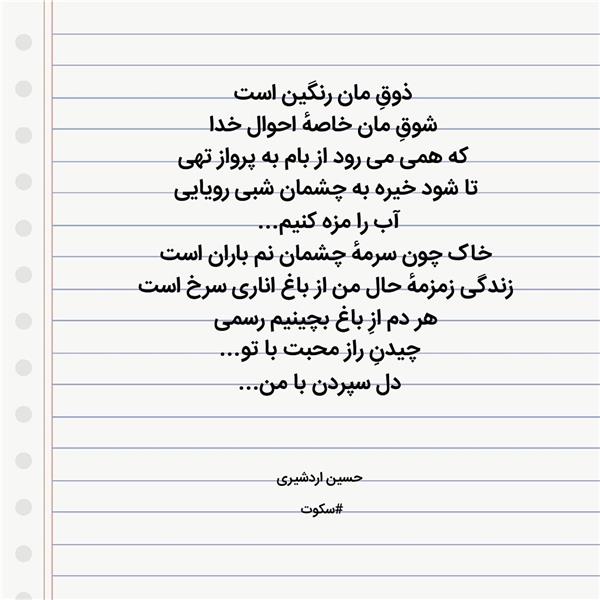 ذوقِ مان رنگین است
شوقِ مان خاصهٔ احوال خدا
که همی می رود از بام به پرواز تهی
تا شود خیره به چشمان شبی رویایی
آب را مزه کنیم...
خاک چون سرمهٔ چشمان نم باران است
زندگی زمزمهٔ حال من از باغ اناری سرخ است
هر دم ازِ باغ بچینیم رسمی
چیدنِ راز محبت با تو...
دل سپردن با من...
حسین اردشیری
#سکوت